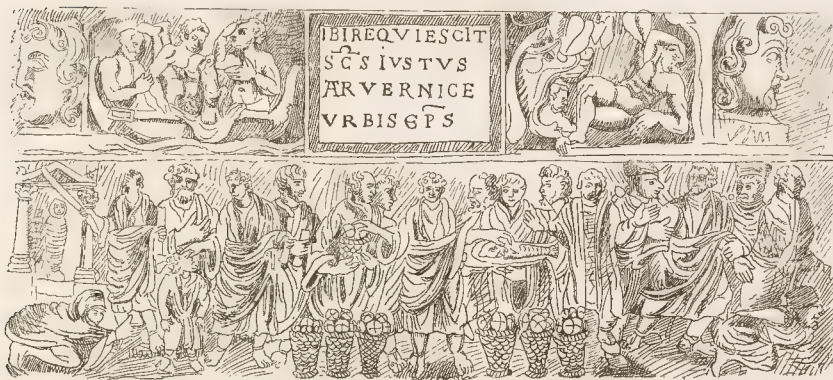 IBI REQVIESCIT
SC̅S IVSTVS
ARVERNICE
VRBIS EP̅S